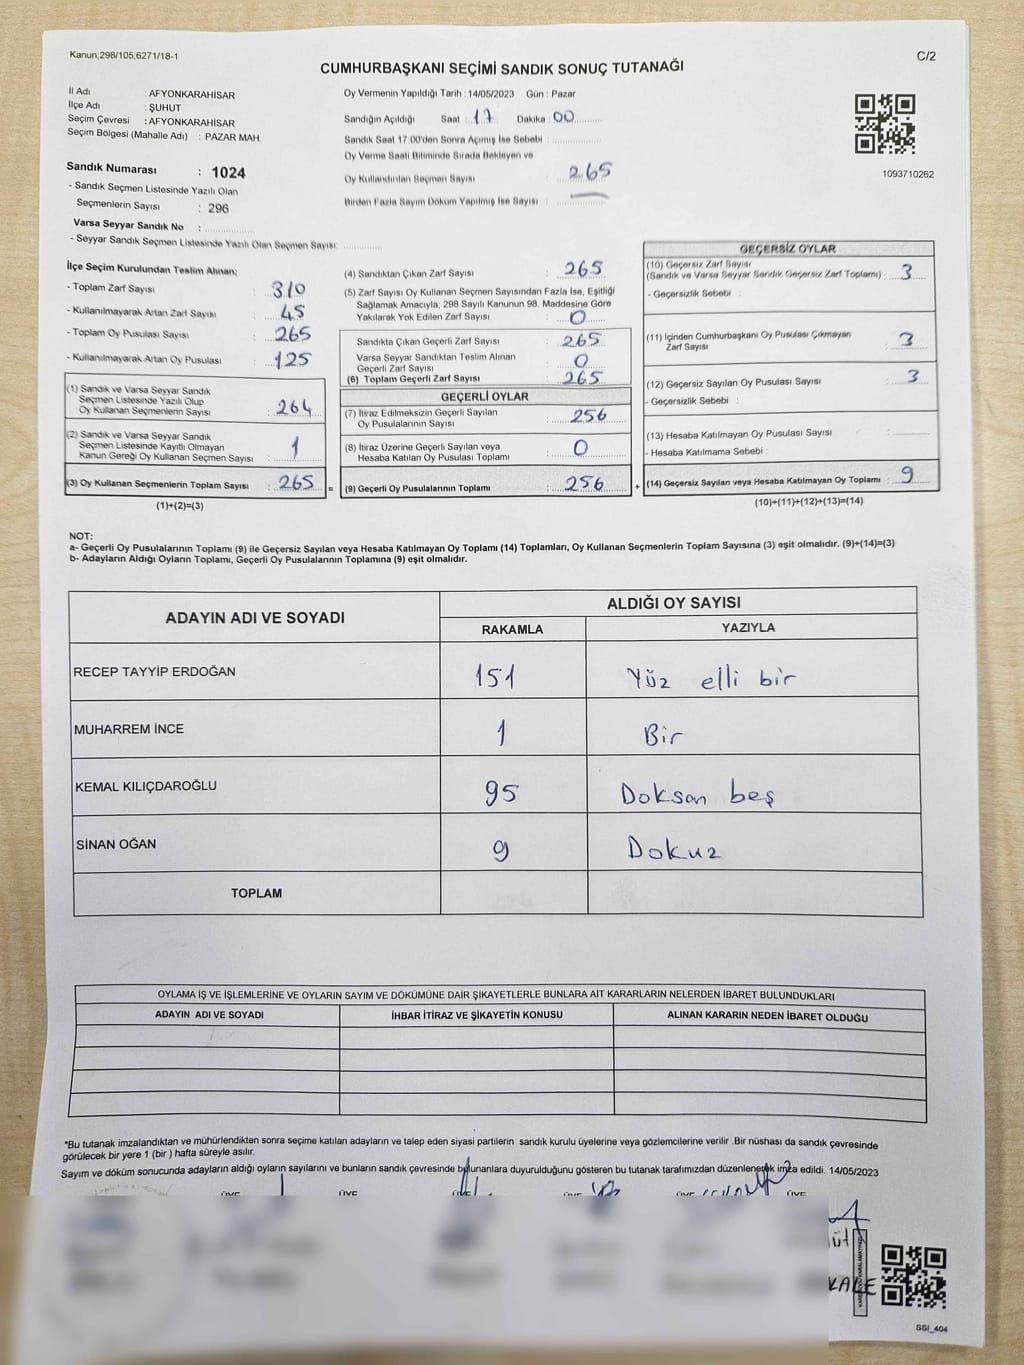 Kanun;298/105;6271/18-1
C/2
CUMHURBAŞKANI SEÇİMİ SANDIK SONUÇ TUTANAĞI
İl Adı : AFYONKARAHİSAR
İlçe Adı : ŞUHUT
Seçim Çevresi : AFYONKARAHİSAR
Seçim Bölgesi (Mahalle Adı) : PAZAR MAH.
Sandık Numarası : 1024
- Sandık Seçmen Listesinde Yazılı Olan
Seçmenlerin Sayısı : 296
Varsa Seyyar Sandık No :
- Seyyar Sandık Seçmen Listesinde Yazılı Olan Seçmen Sayısı:
Oy Vermenin Yapıldığı Tarih : 14/05/2023 Gün : Pazar
Sandığın Açıldığı Saat : 17 Dakika : 00
Sandık Saat 17:00'den Sonra Açımış İse Sebebi :
Oy Verme Saati Bitiminde Sırada Bekleyen ve
Oy Kullandırılan Seçmen Sayısı : 265
Birden Fazla Sayım Döküm Yapılmış İse Sayısı :
1093710262
İlçe Seçim Kurulundan Teslim Alınan;
- Toplam Zarf Sayısı : 310
- Kullanılmayarak Artan Zarf Sayısı : 45
- Toplam Oy Pusulası Sayısı : 265
- Kullanılmayarak Artan Oy Pusulası : 125
(1) Sandık ve Varsa Seyyar Sandık
Seçmen Listesinde Yazılı Olup
Oy Kullanan Seçmenlerin Sayısı : 264
(2) Sandık ve Varsa Seyyar Sandık
Seçmen Listesinde Kayıtlı Olmayan
Kanun Gereği Oy Kullanan Seçmen Sayısı : 1
(3) Oy Kullanan Seçmenlerin Toplam Sayısı : 265 =
(1)+(2)=(3)
(4) Sandıktan Çıkan Zarf Sayısı : 265
(5) Zarf Sayısı Oy Kullanan Seçmen Sayısından Fazla İse, Eşitliği
Sağlamak Amacıyla, 298 Sayılı Kanunun 98. Maddesine Göre
Yakılarak Yok Edilen Zarf Sayısı : 0
Sandıkta Çıkan Geçerli Zarf Sayısı : 265
Varsa Seyyar Sandıktan Teslim Alınan
Geçerli Zarf Sayısı : 0
(6) Toplam Geçerli Zarf Sayısı : 265
GEÇERLİ OYLAR
(7) İtiraz Edilmeksizin Geçerli Sayılan
Oy Pusulalarının Sayısı : 256
(8) İtiraz Üzerine Geçerli Sayılan veya
Hesaba Katılan Oy Pusulası Toplamı : 0
(9) Geçerli Oy Pusulalarının Toplamı : 256 +
GEÇERSİZ OYLAR
(10) Geçersiz Zarf Sayısı
(Sandık ve Varsa Seyyar Sandık Geçersiz Zarf Toplamı) : 3
- Geçersizlik Sebebi :
(11) İçinden Cumhurbaşkanı Oy Pusulası Çıkmayan
Zarf Sayısı : 3
(12) Geçersiz Sayılan Oy Pusulası Sayısı : 3
- Geçersizlik Sebebi :
(13) Hesaba Katılmayan Oy Pusulası Sayısı :
- Hesaba Katılmama Sebebi :
(14) Geçersiz Sayılan veya Hesaba Katılmayan Oy Toplamı : 9
(10)+(11)+(12)+(13)=(14)
NOT:
a- Geçerli Oy Pusulalarının Toplamı (9) ile Geçersiz Sayılan veya Hesaba Katılmayan Oy Toplamı (14) Toplamları, Oy Kullanan Seçmenlerin Toplam Sayısına (3) eşit olmalıdır. (9)+(14)=(3)
b- Adayların Aldığı Oyların Toplamı, Geçerli Oy Pusulalarının Toplamına (9) eşit olmalıdır.
ADAYIN ADI VE SOYADI
ALDIĞI OY SAYISI
RAKAMLA YAZIYLA
RECEP TAYYİP ERDOĞAN 151 Yüz elli bir
MUHARREM İNCE 1 Bir
KEMAL KILIÇDAROĞLU 95 Doksan beş
SİNAN OĞAN 9 Dokuz
TOPLAM
OYLAMA İŞ VE İŞLEMLERİNE VE OYLARIN SAYIM VE DÖKÜMÜNE DAİR ŞİKAYETLERLE BUNLARA AİT KARARLARIN NELERDEN İBARET BULUNDUKLARI
ADAYIN ADI VE SOYADI İHBAR İTİRAZ VE ŞİKAYETİN KONUSU ALINAN KARARIN NEDEN İBARET OLDUĞU
*Bu tutanak imzalandıktan ve mühürlendikten sonra seçime katılan adayların ve talep eden siyasi partilerin sandık kurulu üyelerine veya gözlemcilerine verilir .Bir nüshası da sandık çevresinde
görülecek bir yere 1 (bir ) hafta süreyle asılır.
Sayım ve döküm sonucunda adayların aldığı oyların sayılarını ve bunların sandık çevresinde bulunanlara duyurulduğunu gösteren bu tutanak tarafımızdan düzenlenerek imza edildi. 14/05/2023
ÜYE ÜYE ÜYE ÜYE ÜYE
KALE
SSI_404